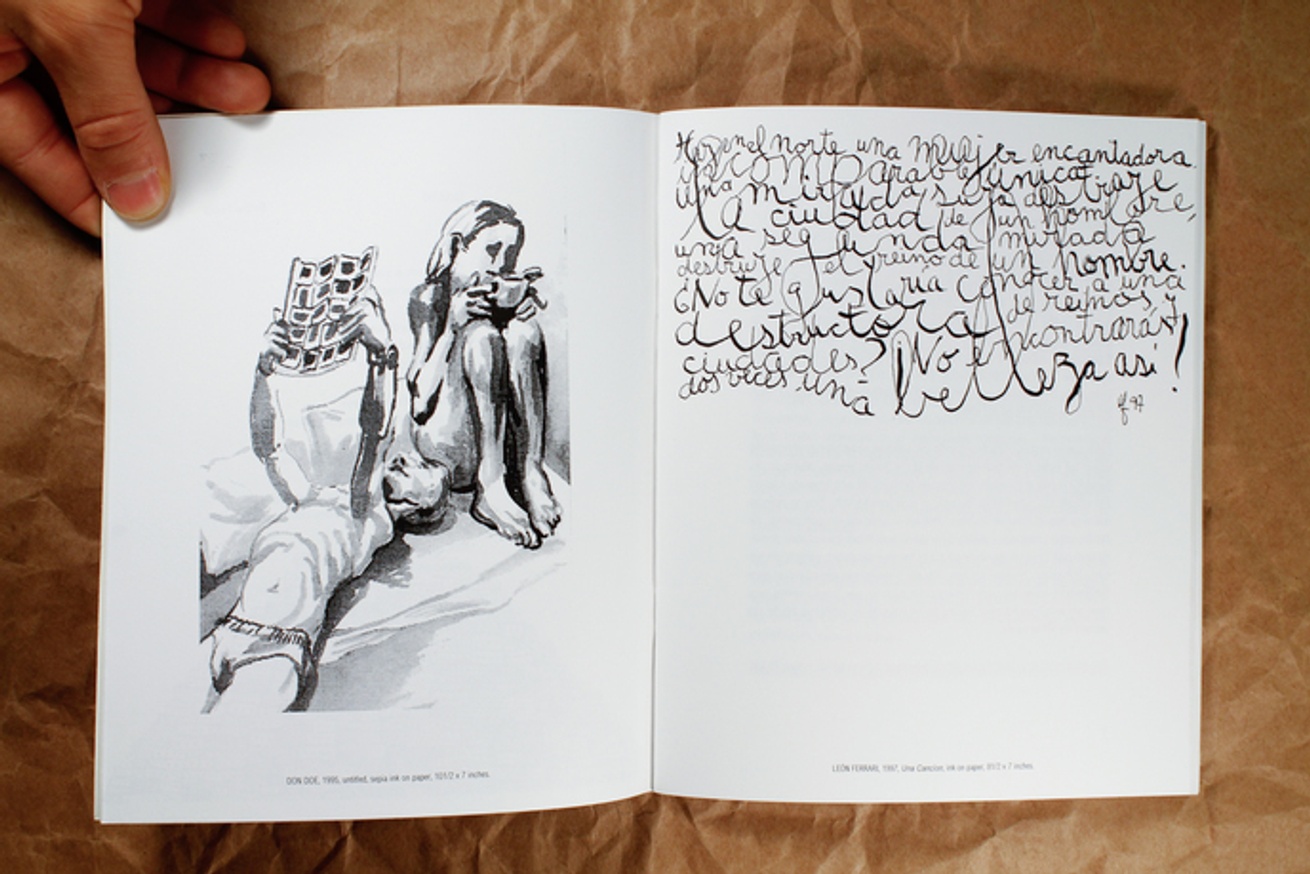 DON DOE, 1995, untitled, sepia ink on paper, 101/2 x 7 inches.
Hay en el norte una mujer encantadora
incomparable y única
una mirada suya destruye
la ciudad de un hombre,
una segunda mirada
destruye el reino de un hombre.
¿No te gustaría conocer a una
destructora de reinos y
ciudades? ¡No encontrarás
dos veces una belleza así!
lf 97
LEÓN FERRARI, 1997, Una Cancion, ink on paper, 91/2 x 7 inches.